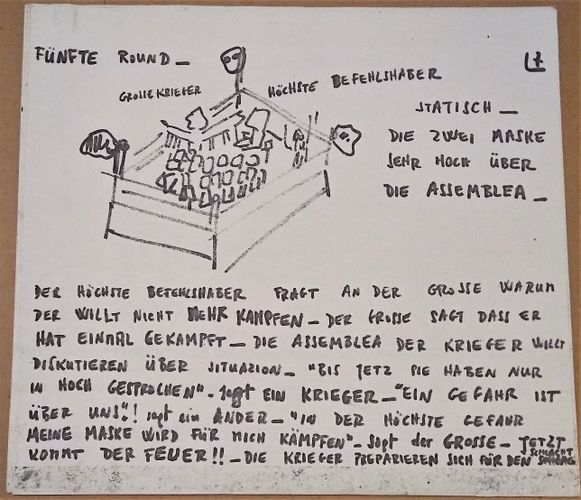 FÜNFTE ROUND_
GROSSE KRIEGER
HÖCHSTE BEFEHLSHABER
STATISCH_
DIE ZWEI MASKE
SEHR HOCH ÜBER
DIE ASSEMBLEA_
DER HÖCHSTE BEFEHLSHABER FRAGT AN DER GROSSE WARUM
DER WILLT NICHT MEHR KAMPFEN_ DER GROSSE SAGT DASS ER
HAT EINMAL GEKAMPFT_ DIE ASSEMBLEA DER KRIEGER WILLT
DISKUTIEREN ÜBER SITUAZION_ "BIS JETZ SIE HABEN NUR
IN HOCH GESPROCHEN"_ sagt EIN KRIEGER_ "EIN GEFAHR IST
ÜBER UNS"! sagt ein ANDER_ "IN DER HÖCHSTE GEFAHR
MEINE MASKE WIRD FÜR MICH KÄMPFEN"_ sagt der GROSSE_ JETZT
KOMMT DER FEUER!!_ DIE KRIEGER PREPARIEREN SICH FÜR DEN SCHLACHT